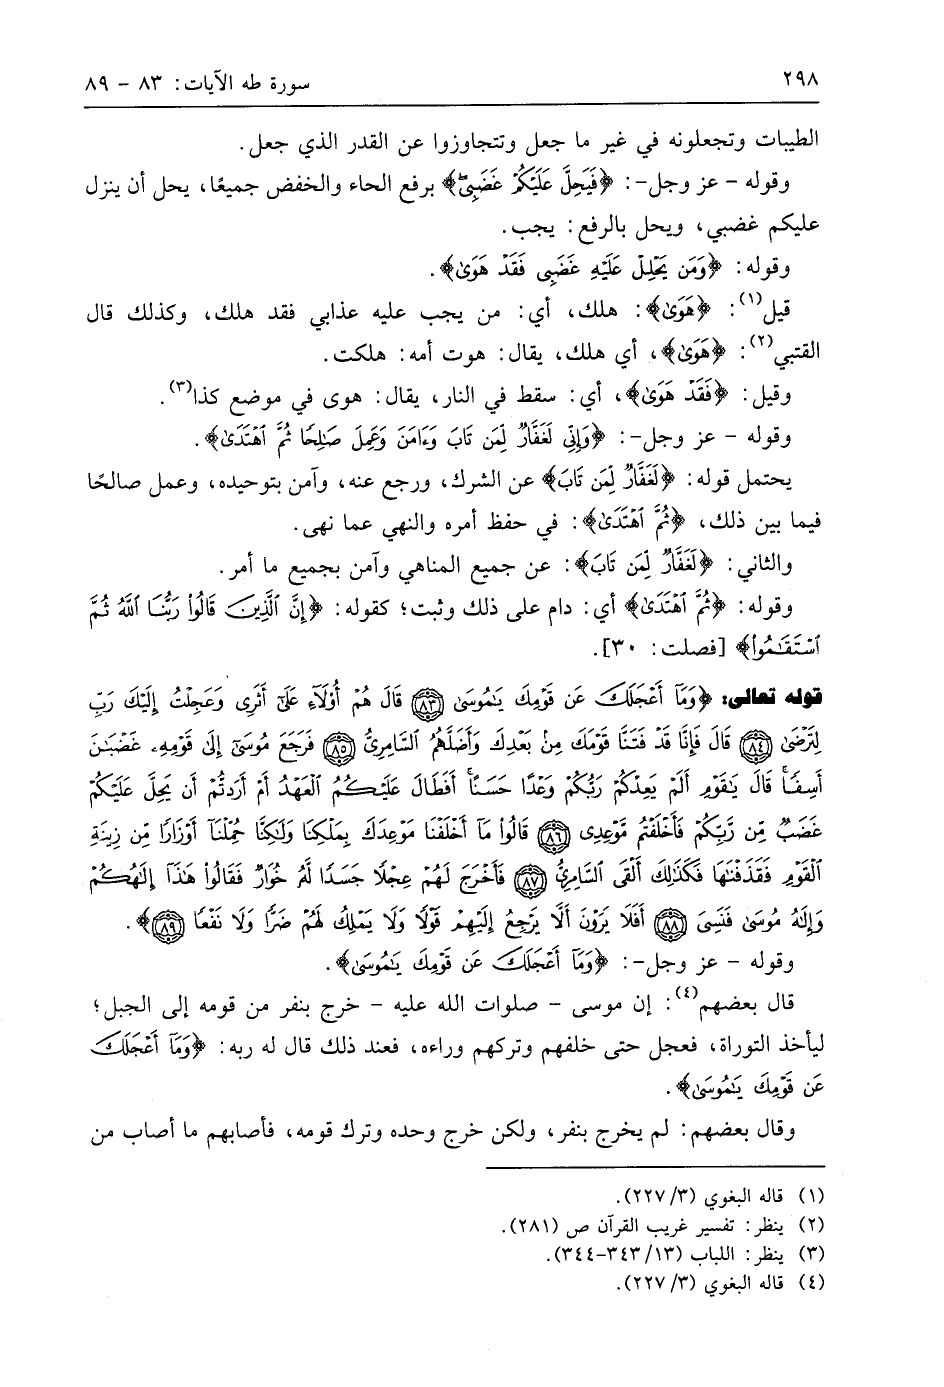 ٢٩٨
سورة طه الآيات: ٨٣ - ٨٩
الطيبات وتجعلونه في غير ما جعل وتتجاوزوا عن القدر الذي جعل.
وقوله - عز وجل-: ﴿فَيَحِلَّ عَلَيْكُمْ غَضَبِيۖ﴾ برفع الحاء والخفض جميعًا، يحل أن ينزل
عليكم غضبي، ويحل بالرفع: يجب.
وقوله: ﴿وَمَن يَحْلِلْ عَلَيْهِ غَضَبِى فَقَدْ هَوَىٰ﴾.
قيل(١): ﴿هَوَىٰ﴾: هلك، أي: من يجب عليه عذابي فقد هلك، وكذلك قال
القتبي(٢): ﴿هَوَىٰ﴾، أي هلك، يقال: هوت أمه: هلكت.
وقيل: ﴿فَقَدْ هَوَىٰ﴾، أي: سقط في النار، يقال: هوى في موضع كذا(٣).
وقوله - عز وجل-: ﴿وَإِنِّى لَغَفَّارٌ لِّمَن تَابَ وَءَامَنَ وَعَمِلَ صَٰلِحًا ثُمَّ ٱهْتَدَىٰ﴾.
يحتمل قوله: ﴿لَغَفَّارٌ لِّمَن تَابَ﴾ عن الشرك، ورجع عنه، وآمن بتوحيده، وعمل صالحًا
فيما بين ذلك، ﴿ثُمَّ ٱهْتَدَىٰ﴾: في حفظ أمره والنهي عما نهى.
والثاني: ﴿لَغَفَّارٌ لِّمَن تَابَ﴾: عن جميع المناهي وآمن بجميع ما أمر.
وقوله: ﴿ثُمَّ ٱهْتَدَىٰ﴾ أي: دام على ذلك وثبت؛ كقوله: ﴿إِنَّ ٱلَّذِينَ قَالُوا۟ رَبُّنَا ٱللَّهُ ثُمَّ
ٱسْتَقَٰمُوا۟﴾ [فصلت: ٣٠].
قوله تعالى: ﴿وَمَآ أَعْجَلَكَ عَن قَوْمِكَ يَٰمُوسَىٰ ٨٣ قَالَ هُمْ أُو۟لَآءِ عَلَىٰٓ أَثَرِى وَعَجِلْتُ إِلَيْكَ رَبِّ
لِتَرْضَىٰ ٨٤ قَالَ فَإِنَّا قَدْ فَتَنَّا قَوْمَكَ مِنۢ بَعْدِكَ وَأَضَلَّهُمُ ٱلسَّامِرِىُّ ٨٥ فَرَجَعَ مُوسَىٰٓ إِلَىٰ قَوْمِهِۦ غَضْبَٰنَ
أَسِفًاۚ قَالَ يَٰقَوْمِ أَلَمْ يَعِدْكُمْ رَبُّكُمْ وَعْدًا حَسَنًاۚ أَفَطَالَ عَلَيْكُمُ ٱلْعَهْدُ أَمْ أَرَدتُّمْ أَن يَحِلَّ عَلَيْكُمْ
غَضَبٌ مِّن رَّبِّكُمْ فَأَخْلَفْتُم مَّوْعِدِى ٨٦ قَالُوا۟ مَآ أَخْلَفْنَا مَوْعِدَكَ بِمَلْكِنَا وَلَٰكِنَّا حُمِّلْنَآ أَوْزَارًا مِّن زِينَةِ
ٱلْقَوْمِ فَقَذَفْنَٰهَا فَكَذَٰلِكَ أَلْقَى ٱلسَّامِرِىُّ ٨٧ فَأَخْرَجَ لَهُمْ عِجْلًا جَسَدًا لَّهُۥ خُوَارٌ فَقَالُوا۟ هَٰذَآ إِلَٰهُكُمْ
وَإِلَٰهُ مُوسَىٰ فَنَسِىَ ٨٨ أَفَلَا يَرَوْنَ أَلَّا يَرْجِعُ إِلَيْهِمْ قَوْلًا وَلَا يَمْلِكُ لَهُمْ ضَرًّا وَلَا نَفْعًا ٨٩﴾.
وقوله - عز وجل-: ﴿وَمَآ أَعْجَلَكَ عَن قَوْمِكَ يَٰمُوسَىٰ﴾.
قال بعضهم(٤): إن موسى - صلوات الله عليه - خرج بنفر من قومه إلى الجبل؛
ليأخذ التوراة، فعجل حتى خلفهم وتركهم وراءه، فعند ذلك قال له ربه: ﴿وَمَآ أَعْجَلَكَ
عَن قَوْمِكَ يَٰمُوسَىٰ﴾.
وقال بعضهم: لم يخرج بنفر، ولكن خرج وحده وترك قومه، فأصابهم ما أصاب من
(١) قاله البغوي (٢٢٧/٣).
(٢) ينظر: تفسير غريب القرآن ص (٢٨١).
(٣) ينظر: اللباب (٣٤٣/١٣-٣٤٤).
(٤) قاله البغوي (٢٢٧/٣).